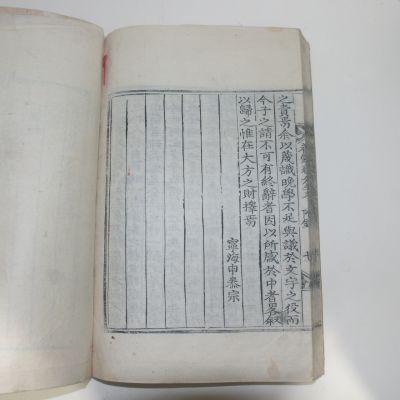 之責哥余以蔑識晩學不足與議於文字之役而
今子之請不可有終辭者因以所感於中者畧叙
以歸之惟在大方之財擇焉
寧海申泰宗